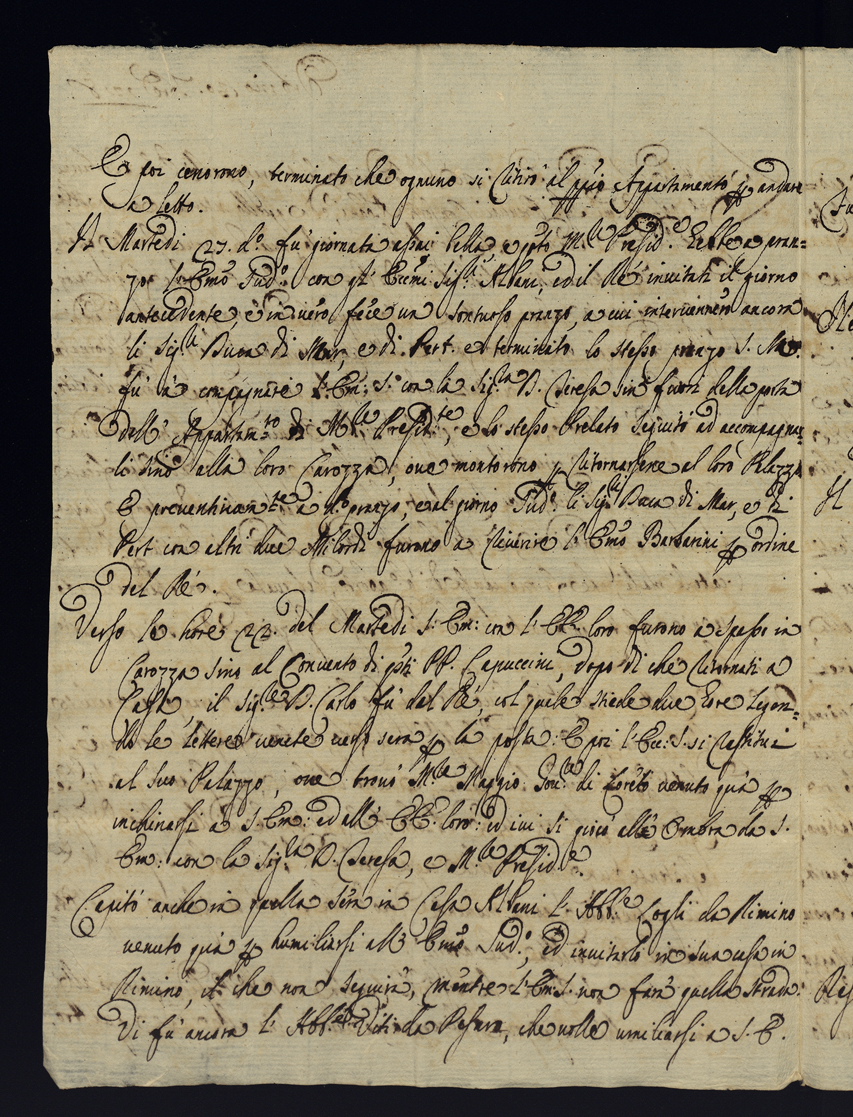 E poi cenorono, terminato che ognuno si ritirò al pprio Appartamento p andare
a letto.
Il Martedi 27. do. fu giornata assai bella, e qsto Mr. Presid.e ebbe a pran=
zo l'Emo Sud.o con gl' Eccmi Sig.ri Albani, ed il Ré invitati il giorno
antecedente, è in vero fece un sontuoso pranzo, a cui intervennero ancora
li Sig.ri Duca di Mar, e di Pert. e terminato lo stesso pranzo S. M.
fu a compagnare l'Em: S. con la Sig.ra D. Teresa sin fuori della porta
dell' Appartam.to di Mr. Presid.te, e lo stesso Prelato seguitò ad accompagnar
li sino alla loro Carozza, ove montorono p ritornarsene al loro Palazzo
E preventivam.te a do. pranzo, e al giorno Sud.o li Sig.ri Duca di Mar, e di
Pert con altri due Milordi furono a riverire l'Emo Barbarini p ordine
del Ré.
Verso le hore 22. del Martedi S. Em: con l'EE. loro furono a spasso in
Carozza sino al Convento di qsti PP. Capuccini, dopo di che ritornati a
Casa, il Sig.re D. Carlo fu dal Ré, col quale stiede due hore legen=
do le lettere venute verso sera p la posta: E poi l'Ecc: S. si restituì
al suo Palazzo, ove trovò Mr. Maggio Gov.re di Loreto venuto quà p
inchinarsi à S. Em: ed all' EE. loro: ed ivi si giocò all' Ombra da S.
Em: con la Sig.ra D. Teresa, e Mr. Presid.e.
Capitò anche in quella sera in Casa Albani l'Abb.e Cogli da Rimino
venuto quà p humiliarsi all' Emo Sud.o, ed invitarlo in sua casa in
Rimino, il che non seguirà, mentre l'Em. S. non farà quella strada.
Vi fu ancora l'Abb.e da Pesaro, che volle umiliarsi a S. E.